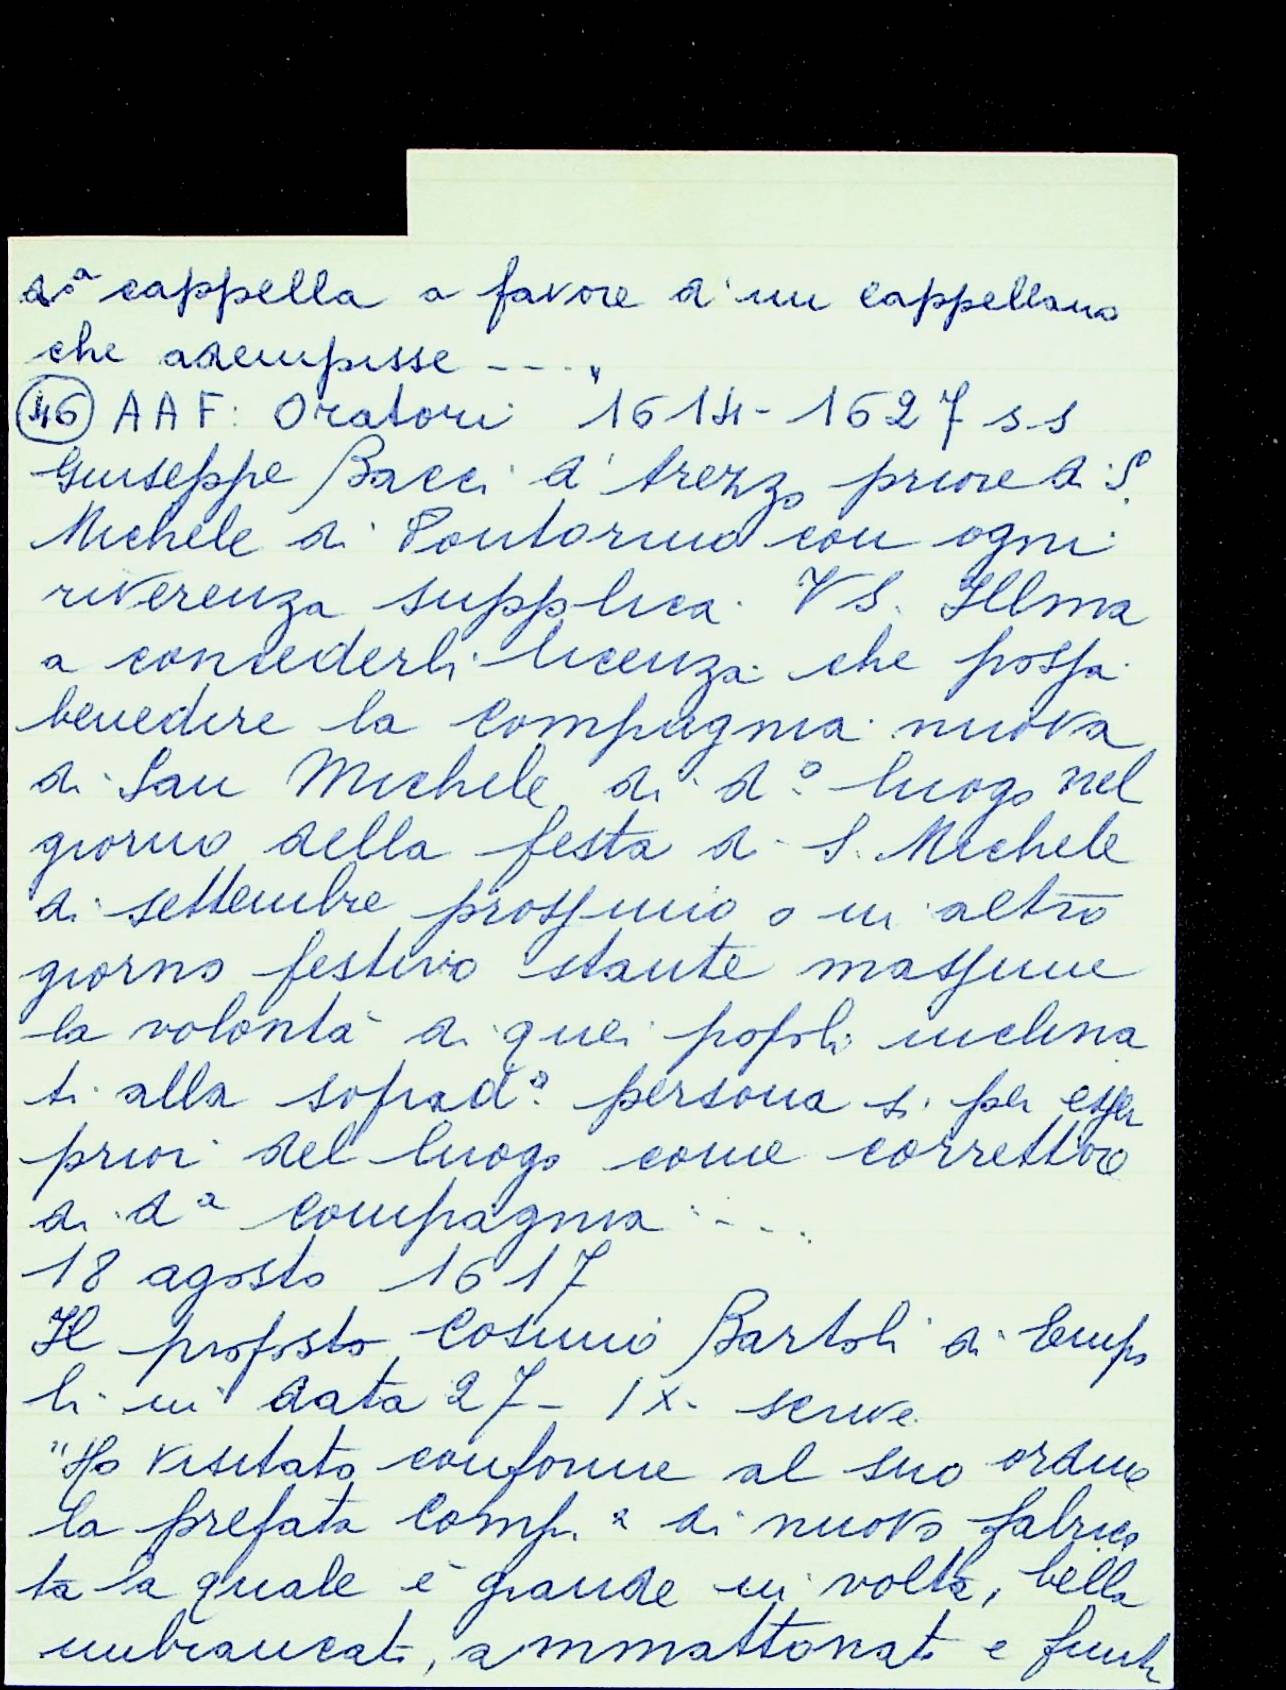 d.ª cappella a favore di un cappellano
che adempisse ----"
46 AAF: Oratori 1614-1627 ss
Giuseppe Bacci d'Arezzo priore di S.
Michele di Pontormo con ogni
riverenza supplica VS. Illma
a concederli licenza che possa
benedire la Compagnia nuova
di San Michele di d.º luogo nel
giorno della festa di S. Michele
di settembre prossimo o in altro
giorno festivo stante massime
la volontà di quei popoli inclina
ti alla soprad.ª persona si per esser
prior del luogo come correttore
di d.ª Compagnia ....
18 agosto 1617
Il proposto Cosimo Bartoli di Empo
li in data 27-IX- scrive
"Ho visitato conforme al suo ordine
la prefata Comp.ª di nuovo fabrica
ta la quale è grande in volta, bella
imbiancata, ammattonata e